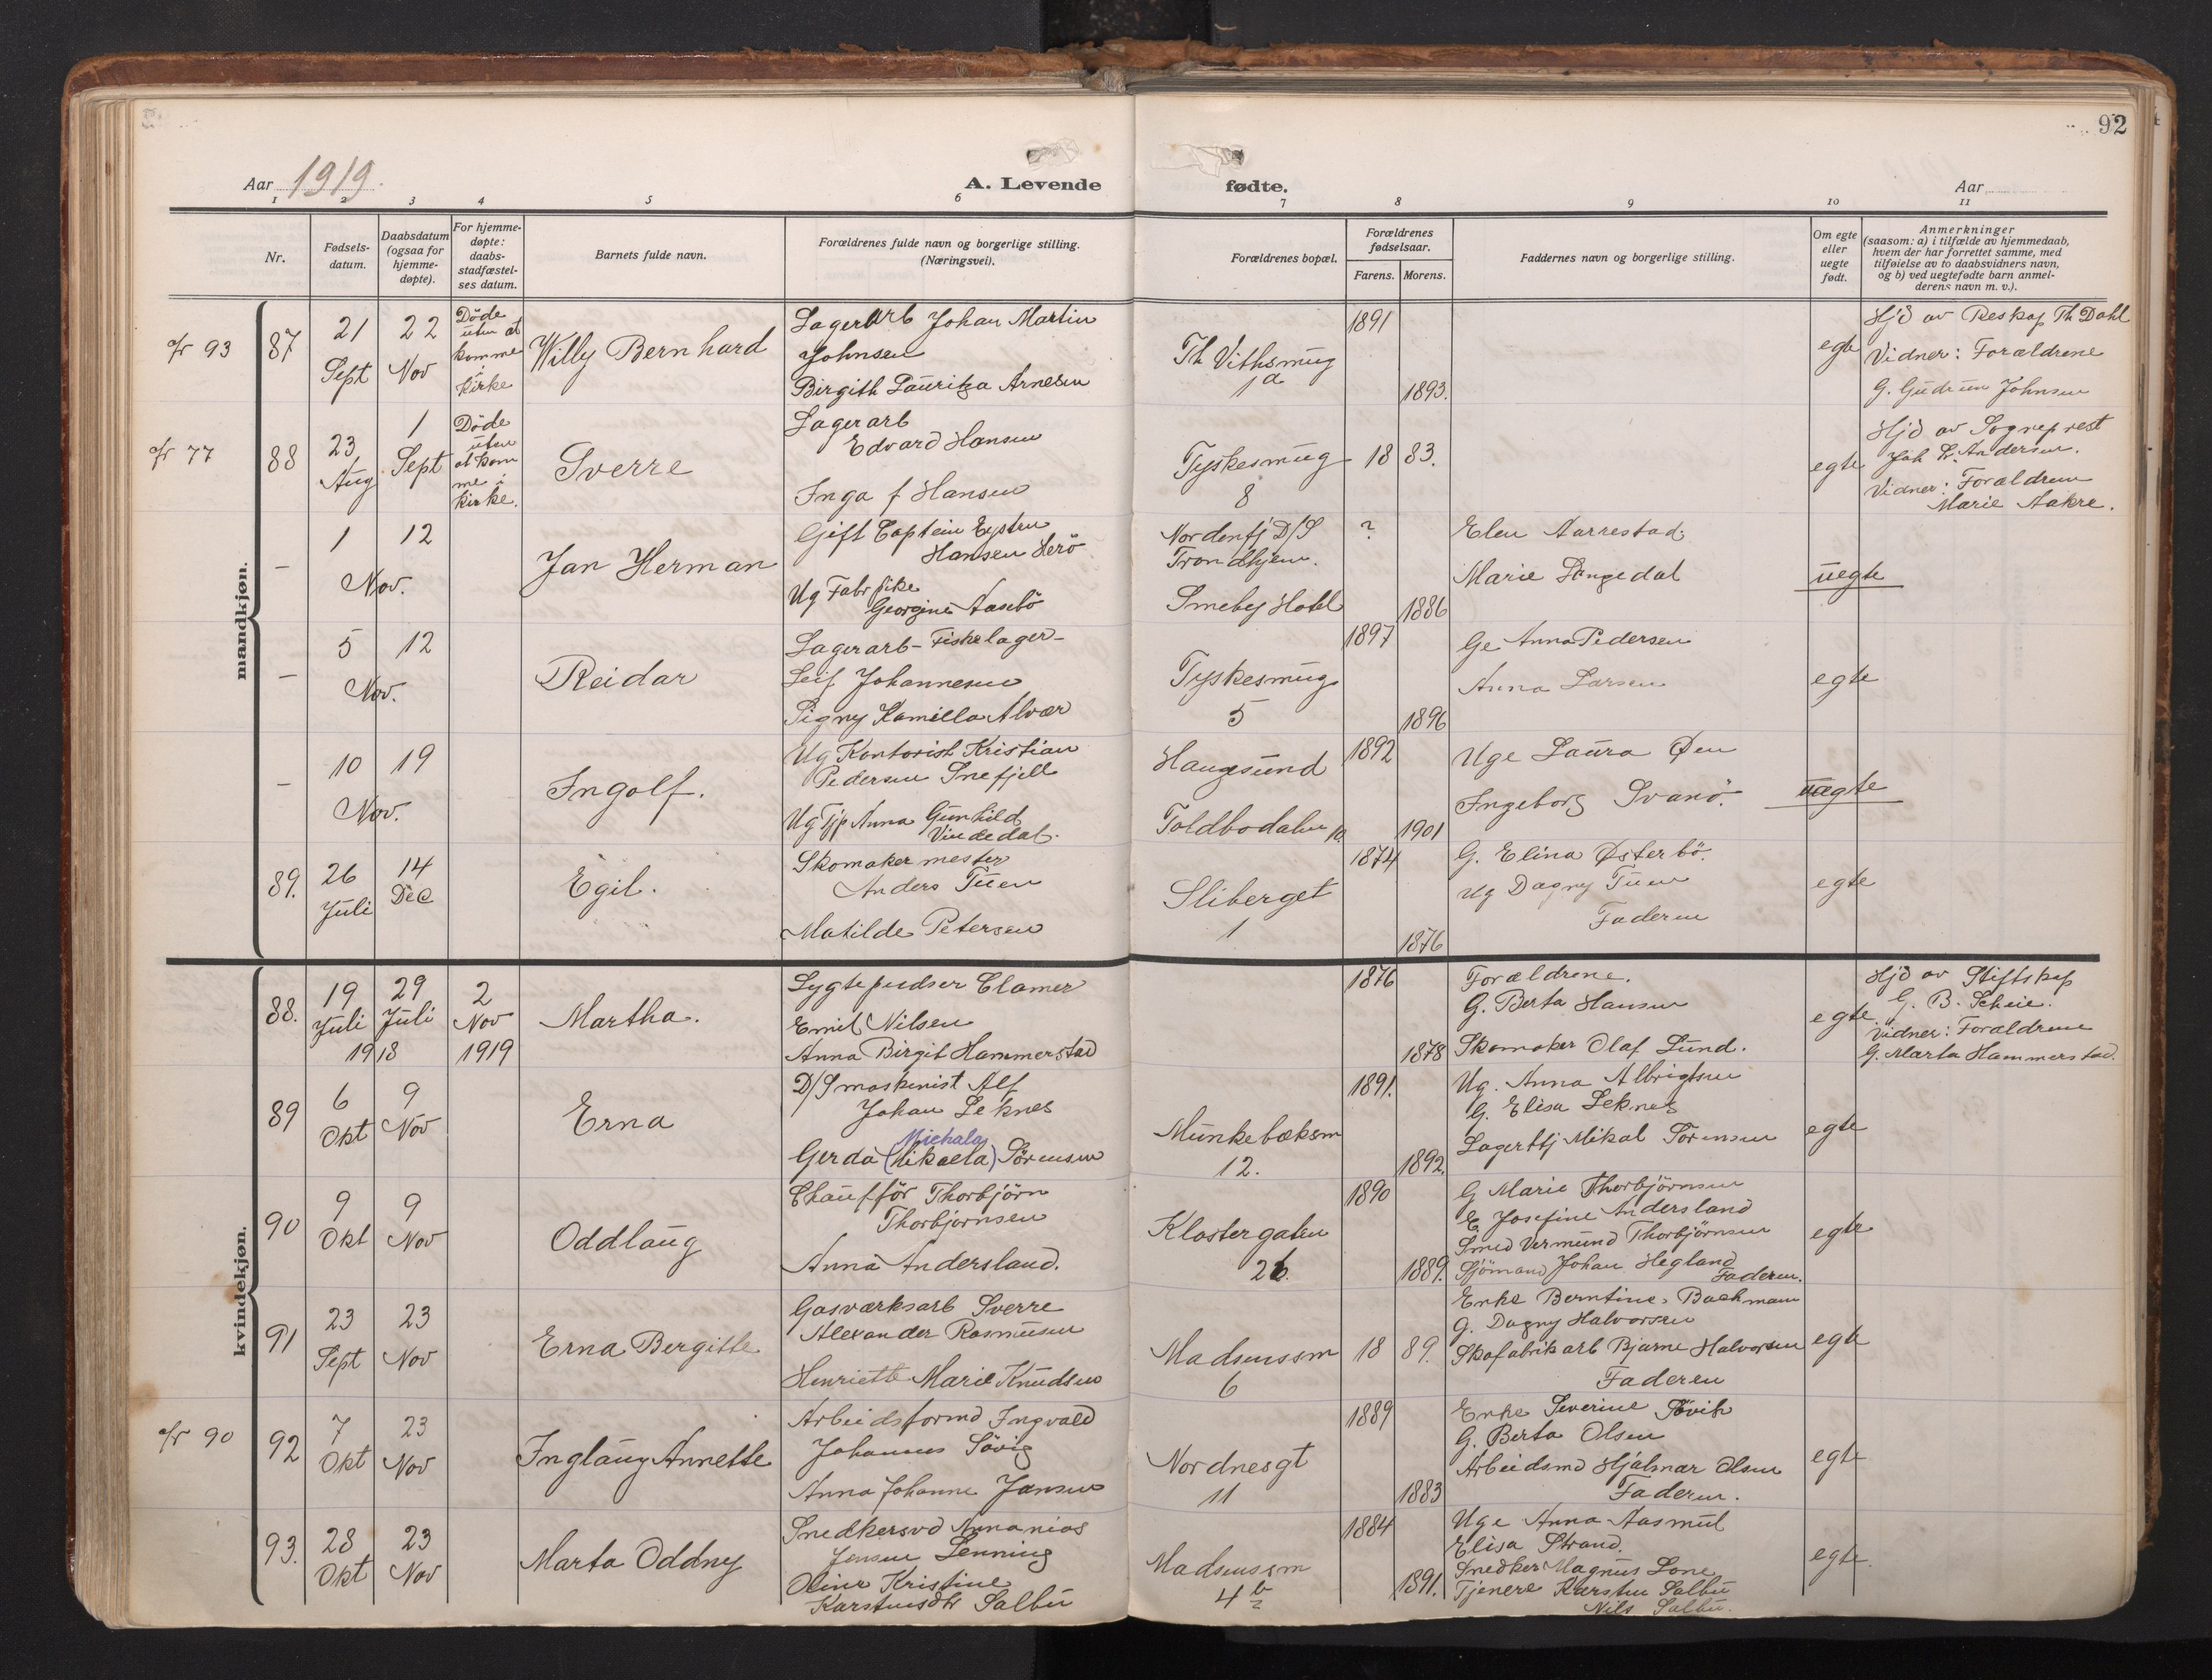 92
Aar 1919.
A. Levende fødte.
Aar
1 2 3 4 5 6 7 8 9 10 11
Nr.
Fødsels-
datum.
Daabsdatum
(ogsaa for
hjemme-
døpte).
For hjemme-
døpte:
daabs-
stadfæstel-
ses datum.
Barnets fulde navn.
Forældrenes fulde navn og borgerlige stilling.
(Næringsvei).
Forældrenes bopæl.
Forældrenes
fødselsaar.
Farens. Morens.
Faddernes navn og borgerlige stilling.
Om egte
eller
uegte
født.
Anmerkninger
(saasom: a) i tilfælde av hjemmedaab,
hvem der har forrettet samme, med
tilføielse av to daabsvidners navn,
og b) ved uegtefødte barn anmel-
derens navn m. v.).
mandkjøn.
93
87
21
Sept
22
Nov
Döde
uten at
komme
i
kirke
Willy Bernhard
Lagerarb Johan Martin
Johnsen
Birgith Lauritza Arnesen
Th Vithsmug
1a
1891
1893.
egte
Hjd av Reskap Th Dahl
Vidner: Forældrene
G. Gudrun Johnsen
77
88
23
Aug
1
Sept
Döde
uten
at kom
me i
kirke.
Sverre
Lagerarb
Edvard Hansen
Inga f Hansen
Tyskesmug
8
18 83.
egte
Hjd av Sogneprest
Joh Andersen.
Vidner: Forældrene
Marie Aakre.
–
1 12
Nov.
Jan Herman
Gift Captein Eystein
Hansen Herö
Ug Fabrpike
Georgine Aasebö
Nordenfj D/S
Trondhjem.
Smeby Hotel
?
1886
Elen Aarrestad
Marie Lingedal
uegte
–
5 12
Nov.
Reidar
Lagerarb - Fiskelager -
Leif Johannesen
Signy Kamilla Alvær
Tyskesmug
5
1897
1896
Ge Anna Pedersen
Anna Larsen
egte
–
10 19
Nov.
Ingolf.
Ug Kontorist Kristian
Pedersen Snefjell
Ug Tjp Anna Gunhild
Vindedal.
Haugesund
Toldbodalm 10.
1892
1901
Uge Laura Øen
Ingeborg Svanö.
uegte
89.
26
Juli
14
Dec
Egil.
Skomakermester
Anders Tuen
Matilde Petersen
Sliberget
1
1874
1876
G. Elina Østerbö.
Ug Dagny Tuen
Faderen
egte
kvindekjøn.
88.
19
Juli
29
Juli
1918
2
Nov
1919
Martha.
Lygtepudser Clamer
Emil Nilsen
Anna Birgit Hammerstad
1876
1878
Forældrene.
G. Berta Hansen
Skomaker Olaf Lund.
egte
Hjd av Stiftskap
G. B. Scheie.
Vidner: Forældrene
G. Marta Hammerstad.
89
6
Okt
9
Nov
Erna
D/S maskinist Alf
Johan Leknes
Michala
Gerda (Mikaela) Sörensen
Munkebæksm
12.
1891.
1892.
Ug. Anna Albrigtsen
G. Elisa Leknes
Lagerbtj Mikal Sörensen
egte
90
9
Okt
9
Nov
Oddlaug
Chaufför Thorbjörn
Thorbjörnsen
Anna Andersland.
Klostergaten
26.
1890
1889.
G Marie Thorbjörnsen
E. Josefine Andersland
Smed Vermund Thorbjörnsen
Sjömand Johan Hegland
Faderen.
egte
91
23
Sept
23
Nov
Erna Bergitte
Gasværksarb Sverre
Alexander Rasmusen
Henriette Marie Knudsen
Madsenssm
6
18 89.
Enke Berntine Bachmann
G. Dagny Halvorsen
Skofabrikarb Bjarne Halvorsen
Faderen
egte
90
92
7
Okt
23
Nov
Inglaug Annette
Arbeidsformd Ingvald
Johannes Sövig
Anna Johanne Jansen
Nordnesgt
11
1889
1883
Enke Severine Sövik
G. Berta Olsen
Arbeidsmd Hjalmar Olsen
Faderen.
egte
93.
28
Okt
23
Nov
Marta Oddny
Snedkersvd Annanias
Jensen Lenning
Oline Kristine
Karstensdtr Salbu
Madsenssm
4b
1884
1891.
Uge Anna Aasmul
Elisa Strand.
Snedker Magnus Lone
Tjenere Karsten Salbu
Nils Salbu.
egte.